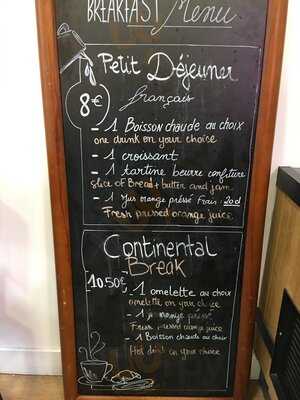 BREAKFAST Menu
Petit Déjeuner
8€
français
- 1 Boisson chaude au choix
one drink on your choice
- 1 croissant
- 1 tartine beurre confiture
slice of Bread + butter and jam
- 1 Jus orange préssé Frais: 20cl
Fresh pressed orange juice
Continental
Break
10.50€
- 1 omelette au choix
omelette on your choice
- 1 orange préssé
Fresh pressed orange juice
- 1 Boisson chaude au choix
Hot drink on your choice